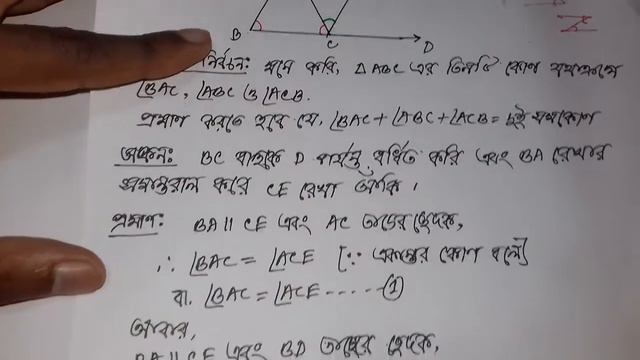 B
C
D
নির্বচন: মনে করি, ΔABC এর তিনটি কোণ যথাক্রমে
∠BAC, ∠ABC ও ∠ACB.
প্রমাণ করতে হবে যে, ∠BAC + ∠ABC + ∠ACB = দুই সমকোণ
অঙ্কন: BC বাহুকে D পর্যন্ত বর্ধিত করি এবং BA রেখার
সমান্তরাল করে CE রেখা আঁকি।
প্রমাণ: BA || CE এবং AC তাদের ছেদক,
∴ ∠BAC = ∠ACE [∵ একান্তর কোণ বলে]
বা, ∠BAC = ∠ACE ----- (1)
আবার,
BA || CE এবং BD তাদের ছেদক,